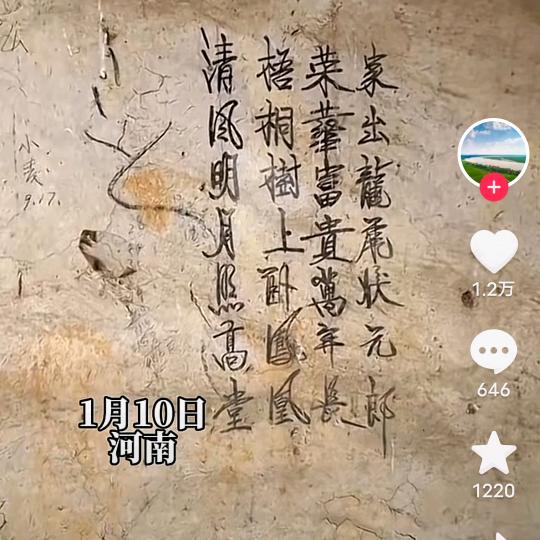 家出龍尾状元郎
荣華富貴萬年長
梧桐樹上卧鳳凰
清風明月照高堂
小麦
9.17.
1月10日
河南
1.2万
646
1220